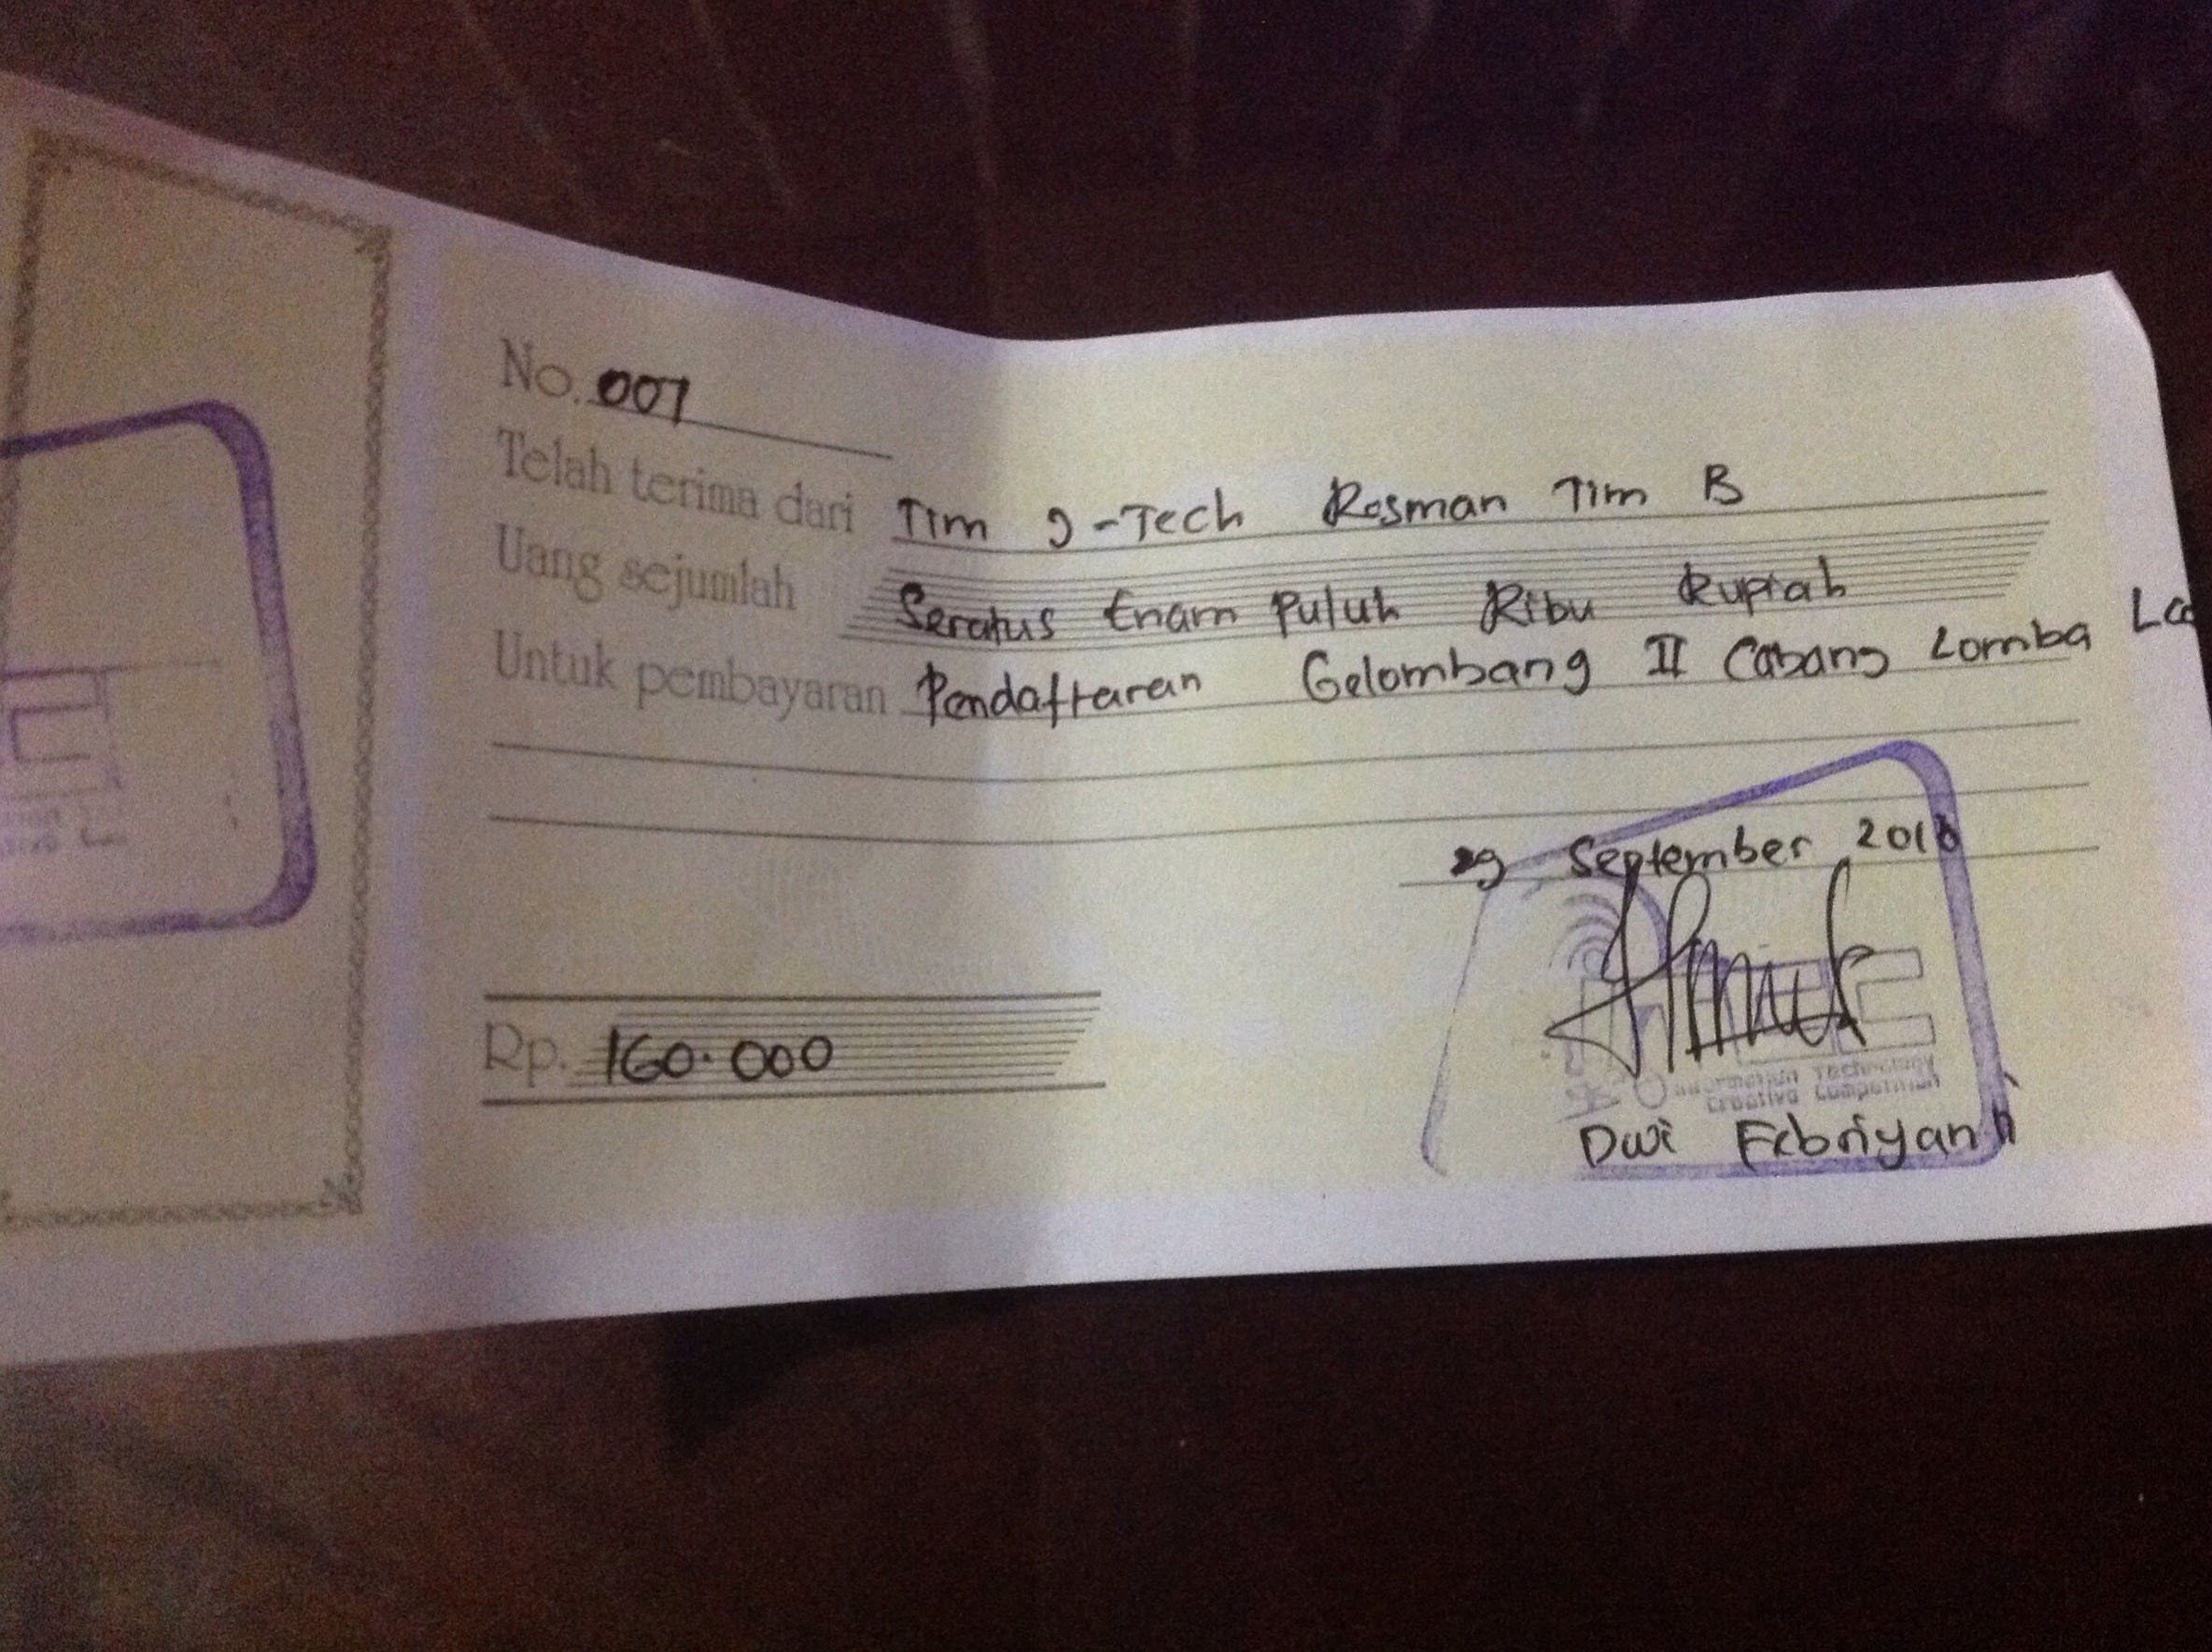 No. 007
Telah terima dari Tim J-Tech Rosman Tim B
Uang sejumlah Seratus Enam Puluh Ribu Rupiah
Untuk pembayaran Pendaftaran Gelombang II Cabang Lomba
29 September 2018
Rp. 160.000
Information Technology
Creative Competition
Dwi Febriyanti